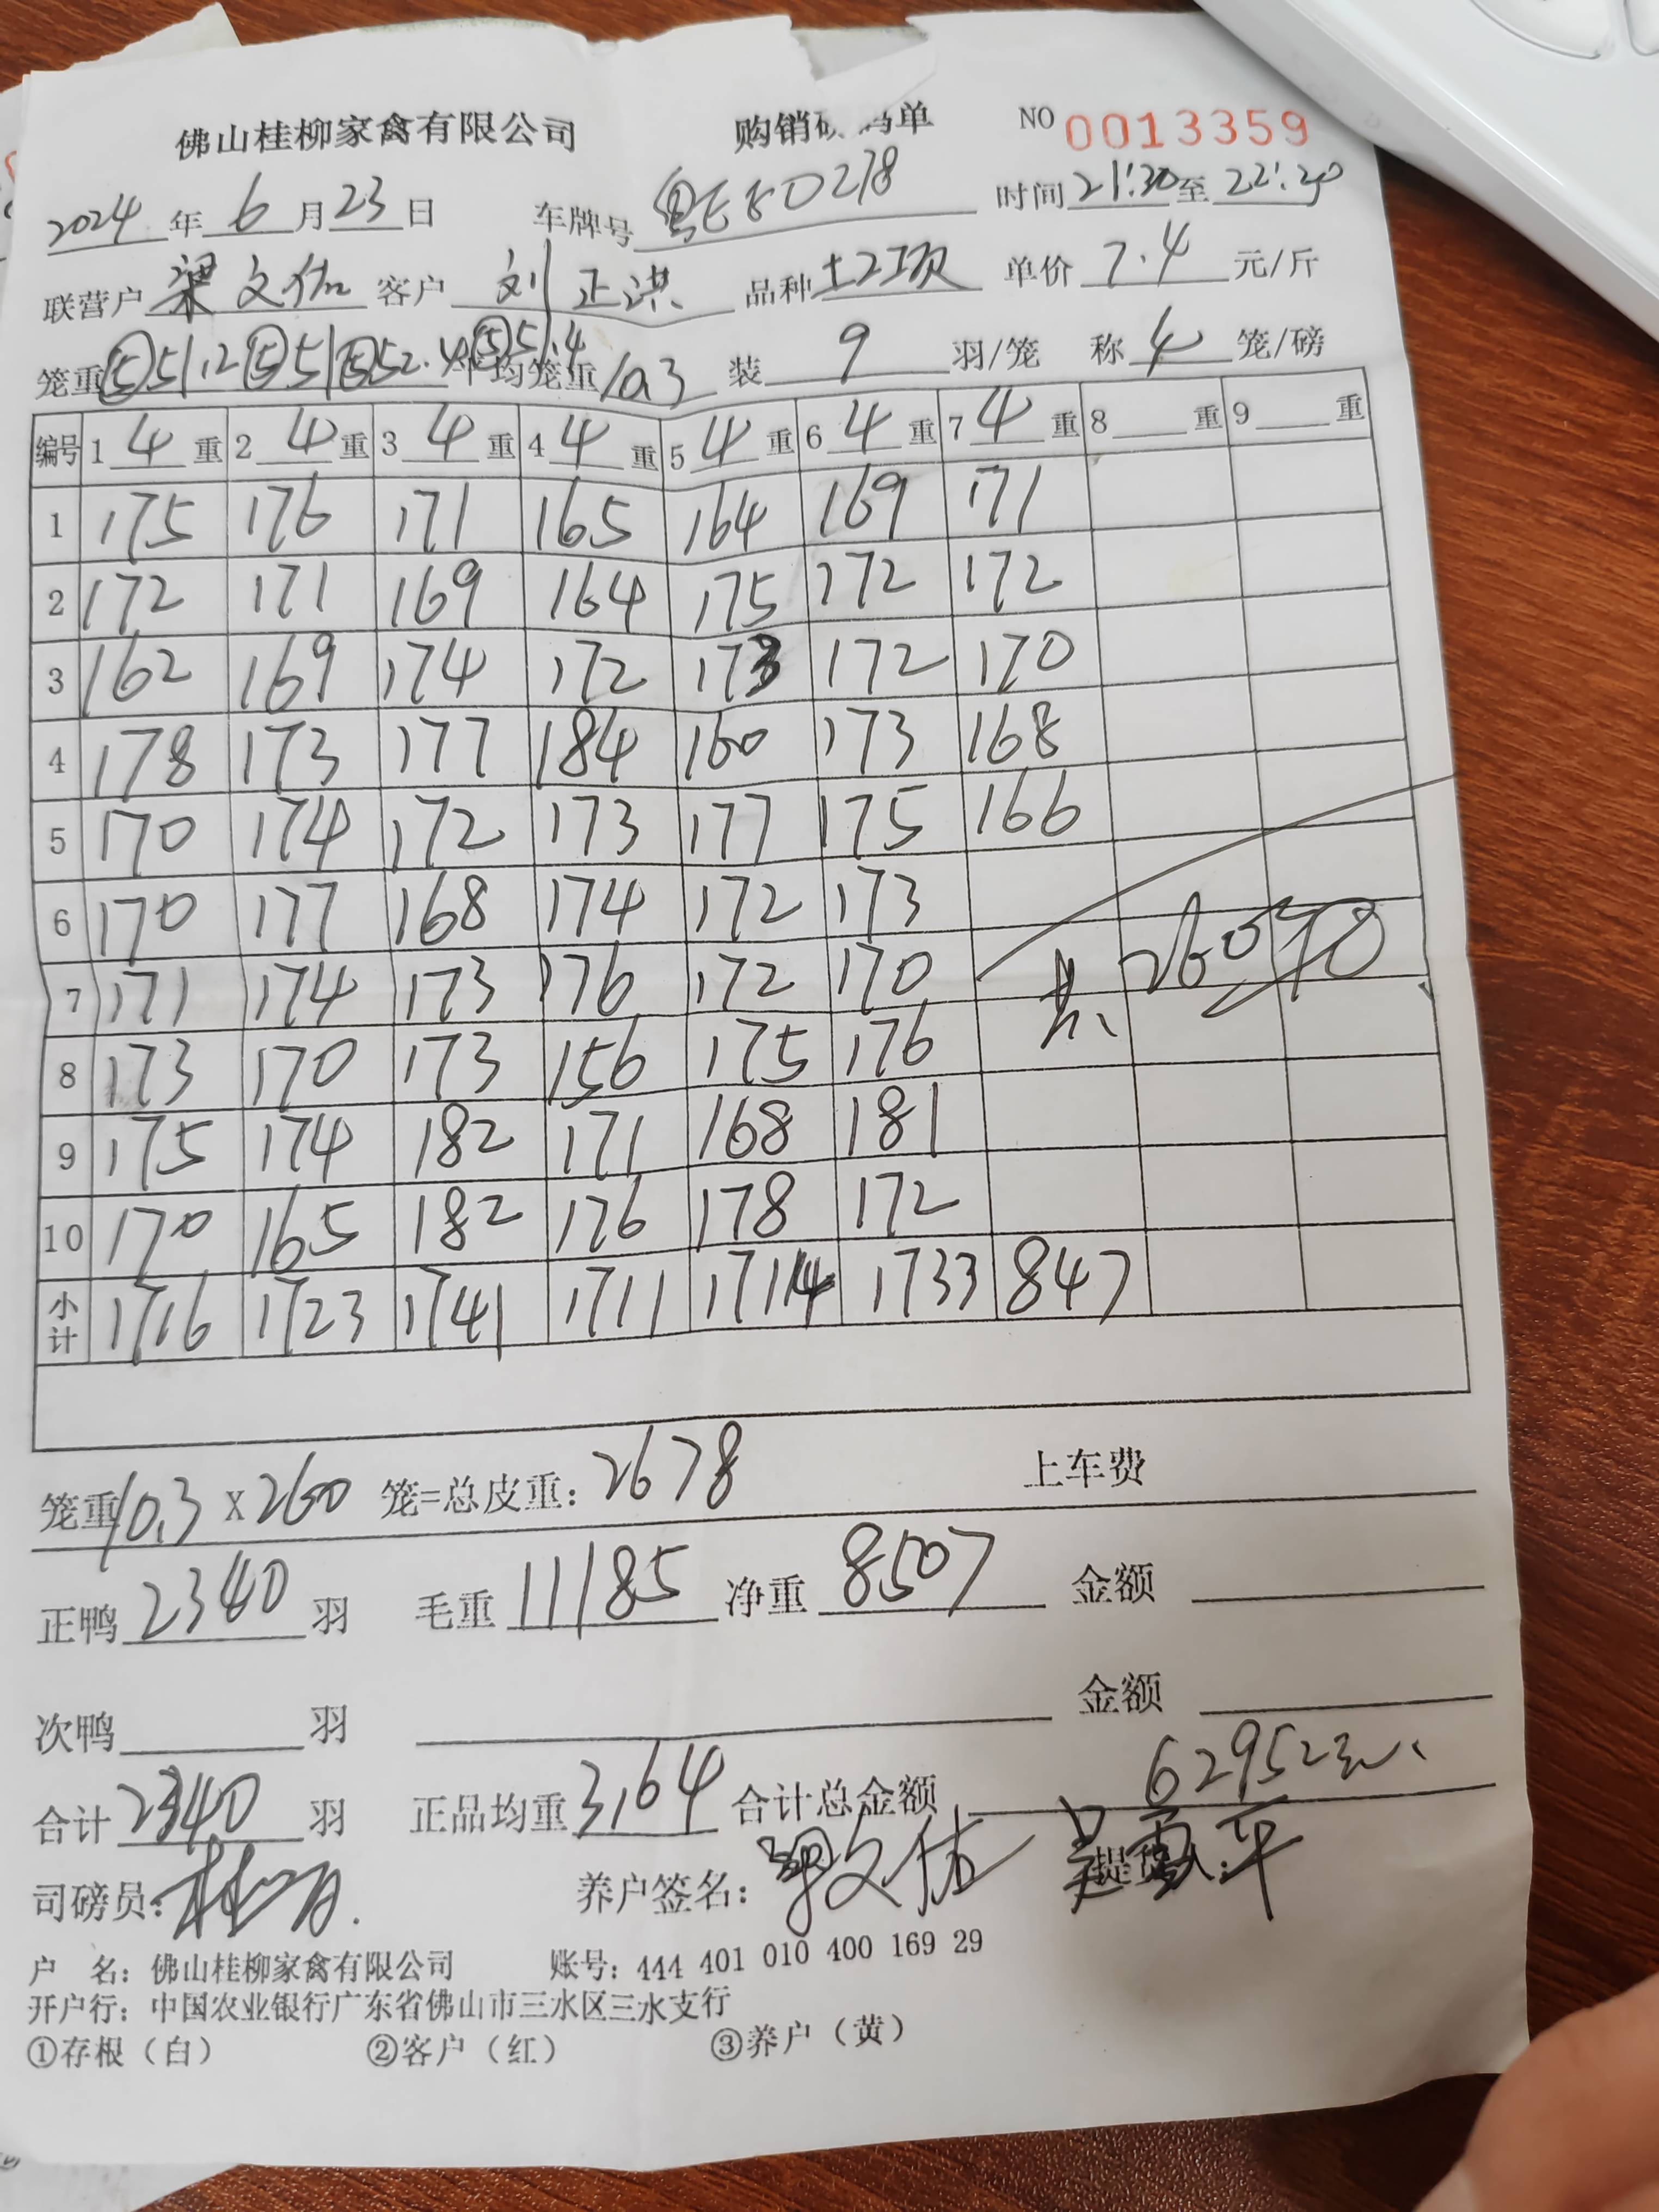 佛山桂柳家禽有限公司 购销 码单 NO 0013359
2024 年 6 月 23 日 车牌号 粤E80278 时间 21:30 至 22:20
联营户 梁文佑 客户 刘正洪 品种 单价 7.4 元/斤
笼重 ⑤51.2 ⑤51 ⑤52.4 ⑤51.4 平均笼重 10.3 装 9 羽/笼 称 4 笼/磅
编号 1 4 重 2 4 重 3 4 重 4 4 重 5 4 重 6 4 重 7 4 重 8 重 9 重
1 175 176 171 165 164 169 171
2 172 171 169 164 175 172 172
3 162 169 174 172 173 172 170
4 178 173 177 184 160 173 168
5 170 174 172 173 177 175 166
6 170 177 168 174 172 173
7 171 174 173 176 172 170 共 260
8 173 170 173 156 175 176
9 175 174 182 171 168 181
10 170 165 182 176 178 172
小计 1716 1723 1741 1711 1714 1733 847
笼重 10.3 X 260 笼=总皮重: 2678 上车费
正鸭 2340 羽 毛重 11185 净重 8507 金额
次鸭 羽 金额
合计 2340 羽 正品均重 3.64 合计总金额 62952元
司磅员: 养户签名: 梁文佑 提货人:
户 名: 佛山桂柳家禽有限公司 账号: 444 401 010 400 169 29
开户行: 中国农业银行广东省佛山市三水区三水支行
①存根（白） ②客户（红） ③养户（黄）